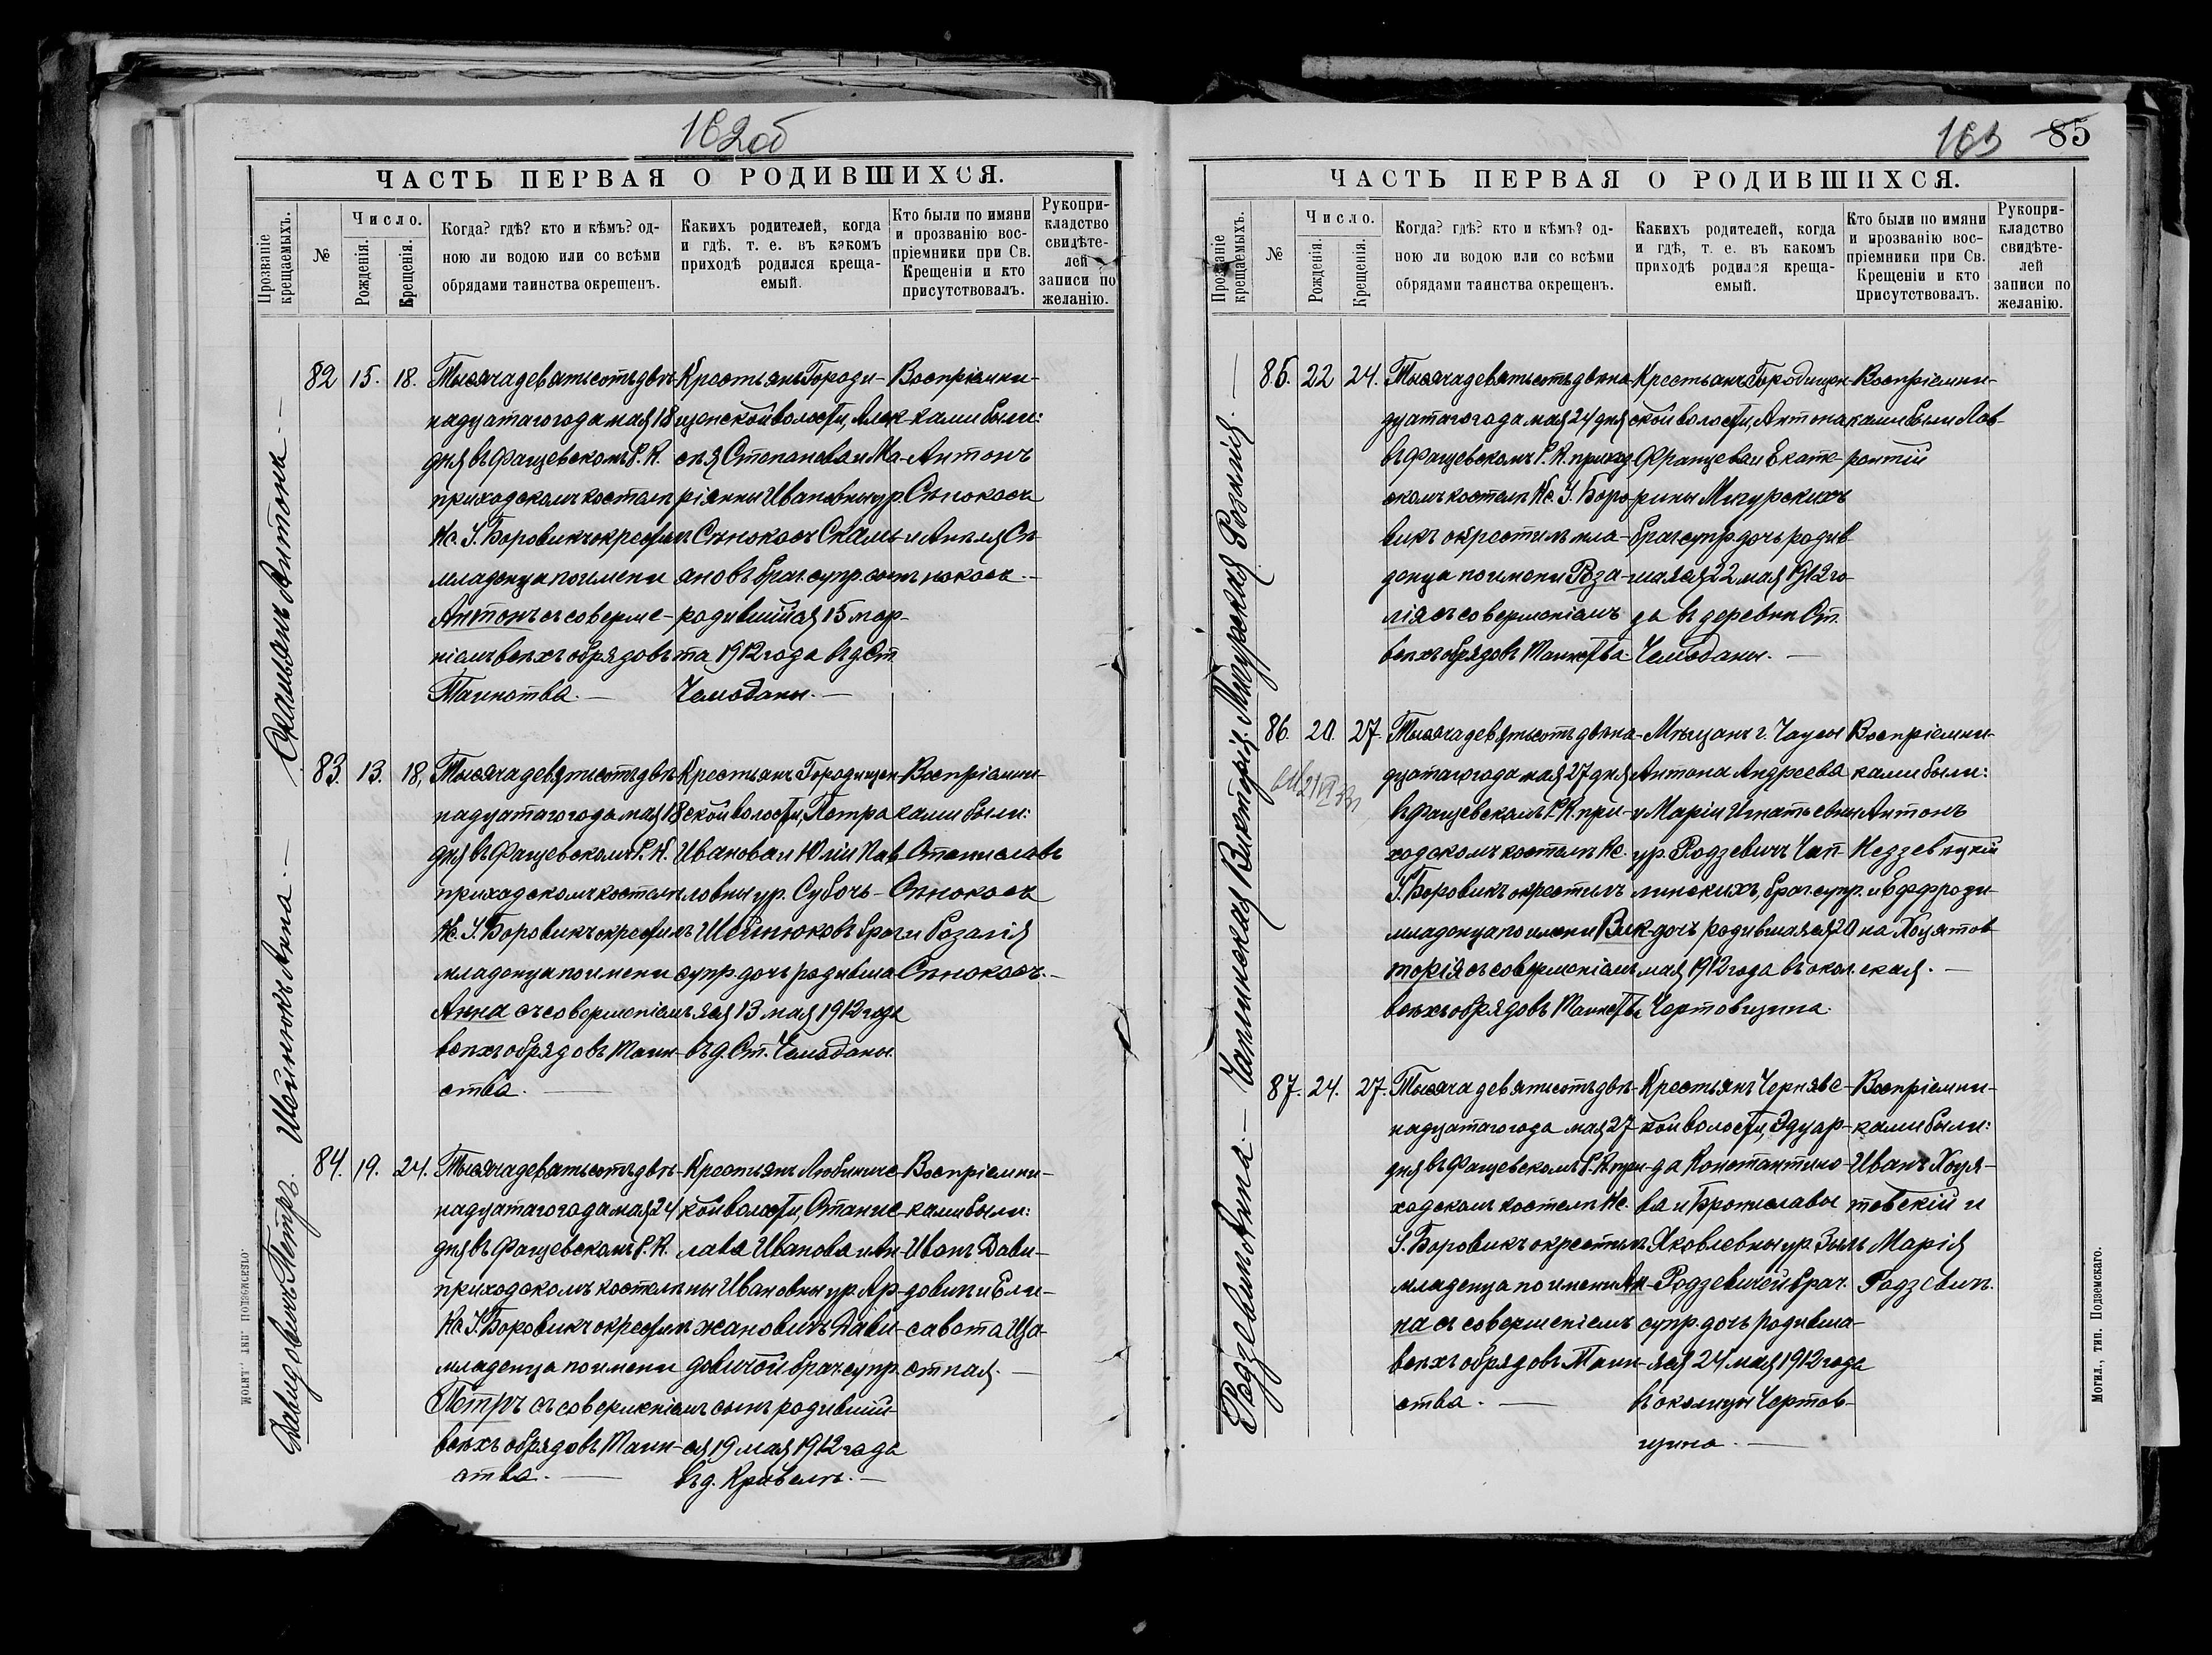 162об
ЧАСТЬ ПЕРВАЯ О РОДИВШИХСЯ.
Прозваніе крещаемыхъ.
№
Число.
Рожденія.
Крещенія.
Когда? гдѣ? кто и кѣмъ? од-
ною ли водою или со всѣми
обрядами таинства окрещенъ.
Какихъ родителей, когда
и гдѣ, т. е. въ какомъ
приходѣ родился креща-
емый.
Кто были по имяни
и прозванію вос-
пріемники при Св.
Крещеніи и кто
присутствовалъ.
Рукопри-
кладство
свидѣте-
лей
записи по
желанію.
Скамьянъ Антонъ.
82 15. 18.
Тысяча девятьсотъ двѣ-
надцатаго года мая 18
дня въ Фащевскомъ Р. К.
приходскомъ костелѣ
Кс. І. Боровикъ окрестилъ
младенца по имени
Антонъ съ соверше-
ніемъ всѣхъ обрядовъ
Таинства. —
Крестьянъ Городи-
щенской волости, Алек-
сѣя Степанова и Ма-
ріянны Ивановны ур.
Сѣнокосъ Скамь-
яновъ брач. супр. сынъ
родившійся 15 мар-
та 1912 года въ д. Ст.
Чемоданы. —
Воспріемни-
ками были:
Антонъ
Сѣнокосъ
и Анеля Сѣ-
нокосъ. —
Шейнюкъ Анна. —
83. 13. 18,
Тысяча девятьсотъ двѣ-
надцатаго года мая 18
дня въ Фащевскомъ Р. К.
приходскомъ костелѣ
Кс. І. Боровикъ окрестилъ
младенца по имени
Анна съ совершеніемъ
всѣхъ обрядовъ Таин-
ства. —
Крестьянъ Городищен-
ской волости, Петра
Иванова и Юліи Пав-
ловны ур. Субочъ-
Шейнюковъ брач.
супр. дочь родивша-
яся 13 мая 1912 года
въ д. Ст. Чемоданы.
Воспріемни-
ками были:
Станиславъ
Сѣнокосъ
и Розалія
Сѣнокосъ. —
Давидовичъ Петръ.
84. 19. 24.
Тысяча девятьсотъ двѣ-
надцатаго года мая 24
дня въ Фащевскомъ Р. К.
приходскомъ костелѣ
Кс. І. Боровикъ окрестилъ
младенца по имени
Петръ съ совершеніемъ
всѣхъ обрядовъ Таин-
ства. —
Крестьянъ Любинис-
кой волости, Станис-
лава Иванова и Ан-
ны Ивановны ур. Яр-
жановичъ Дави-
довичей брач. супр.
сынъ родивший-
ся 19 мая 1912 года
въ д. Кривель. —
Воспріемни-
ками были:
Иванъ Дави-
довичъ и Ели-
савета Ща-
стная. —
163 85
ЧАСТЬ ПЕРВАЯ О РОДИВШИХСЯ.
Прозваніе крещаемыхъ.
№
Число.
Рожденія.
Крещенія.
Когда? гдѣ? кто и кѣмъ? од-
ною ли водою или со всѣми
обрядами таинства окрещенъ.
Какихъ родителей, когда
и гдѣ, т. е. въ какомъ
приходѣ родился креща-
емый.
Кто были по имяни
и прозванію вос-
пріемники при Св.
Крещеніи и кто
присутствовалъ.
Рукопри-
кладство
свидѣте-
лей
записи по
желанію.
Мигурская Розалія. —
85. 22 24.
Тысяча девятьсотъ двѣна-
дцатаго года мая 24 дня
въ Фащевскомъ Р. К. приход-
скомъ костелѣ Кс. І. Боро-
викъ окрестилъ мла-
денца по имени Роза-
лія съ совершеніемъ
всѣхъ обрядовъ Таинства.
Крестьянъ Городищен-
ской волости, Антона
Францева и Екате-
рины Мигурскихъ
брач. супр. дочь родив-
шаяся 22 мая 1912 го-
да въ деревнѣ Ст.
Чемоданы. —
Воспріемни-
ками были Лав-
рентій
Чаплинская Викторія.
86. 20. 27.
Тысяча девятьсотъ двѣна-
дцатаго года мая 27 дня
въ Фащевскомъ Р. К. при-
ходскомъ костелѣ Кс.
І. Боровикъ окрестилъ
младенца по имени Вик-
торія съ совершеніемъ
всѣхъ обрядовъ Таинства
Мѣщанъ г. Чаусы
Антона Андреева
и Маріи Игнатьевны
ур. Родзевичъ Чап-
линскихъ, брач. супр.
дочь родившаяся 20
мая 1912 года въ окол.
Чертовщина.
Воспріемни-
ками были:
Антонъ
Недзевѣцкій
и Ефрози-
на Хоцятов-
ская. —
Родзевичъ Анна. —
87. 24. 27.
Тысяча девятьсотъ двѣ-
надцатаго года мая 27
дня въ Фащевскомъ Р. К. при-
ходскомъ костелѣ Кс.
І. Боровикъ окрестилъ
младенца по имени Ан-
на съ совершеніемъ
всѣхъ обрядовъ Таин-
ства. —
Крестьянъ Чернявс-
кой волости, Эдуар-
да Константино-
ва и Брониславы
Яковлевны ур. Зыль
Родзевичей брач.
супр. дочь родивша-
яся 24 мая 1912 года
въ околицы Чертов-
щина. —
Воспріемни-
ками были:
Иванъ Хоця-
товскій и
Марія
Родзевичъ.
Могил., тип. Подземскаго.